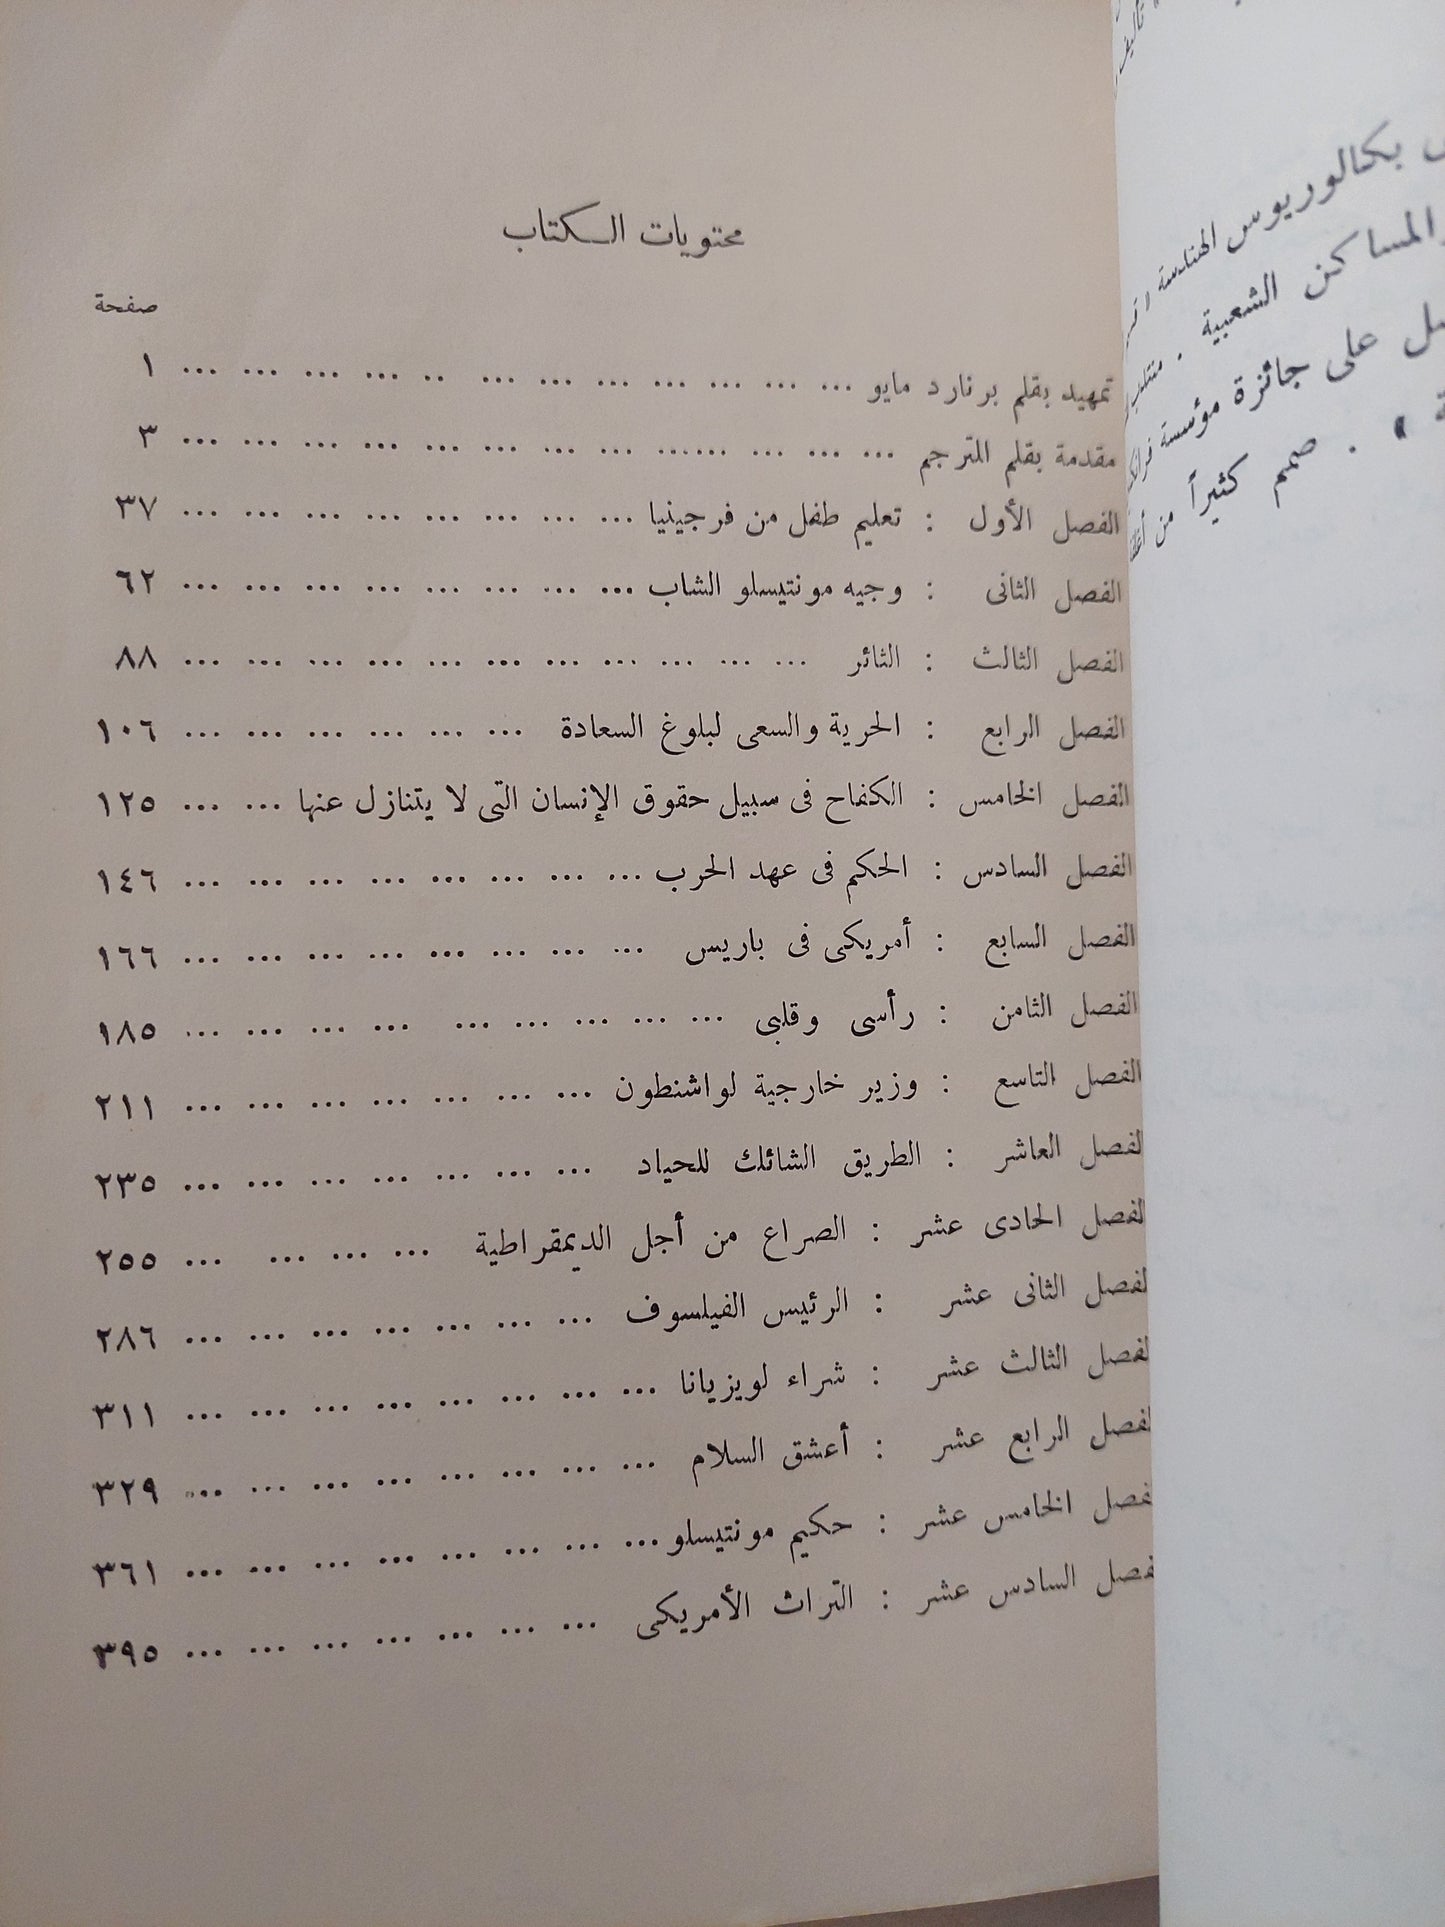 محتويات الكتاب
صفحة
تمهيد بقلم برنارد مايو ... ١
مقدمة بقلم المترجم ... ٣
الفصل الأول : تعليم طفل من فرجينيا ... ٣٧
الفصل الثانى : وجيه مونتيسلو الشاب ... ٦٢
الفصل الثالث : الثائر ... ٨٨
الفصل الرابع : الحرية والسعى لبلوغ السعادة ... ١٠٦
الفصل الخامس : الكفاح فى سبيل حقوق الإنسان التى لا يتنازل عنها ... ١٢٥
الفصل السادس : الحكم فى عهد الحرب ... ١٤٦
الفصل السابع : أمريكى فى باريس ... ١٦٦
الفصل الثامن : رأسى وقلبى ... ١٨٥
الفصل التاسع : وزير خارجية لواشنطون ... ٢١١
الفصل العاشر : الطريق الشائك للحياد ... ٢٣٥
الفصل الحادى عشر : الصراع من أجل الديمقراطية ... ٢٥٥
الفصل الثانى عشر : الرئيس الفيلسوف ... ٢٨٦
الفصل الثالث عشر : شراء لويزيانا ... ٣١١
الفصل الرابع عشر : أعشق السلام ... ٣٢٩
الفصل الخامس عشر : حكيم مونتيسلو ... ٣٦١
الفصل السادس عشر : التراث الأمريكى ... ٣٩٥
تأليف
بكالوريوس الهندسة
المساكن الشعبية .
على جائزة مؤسسة
» . صمم كثيراً من